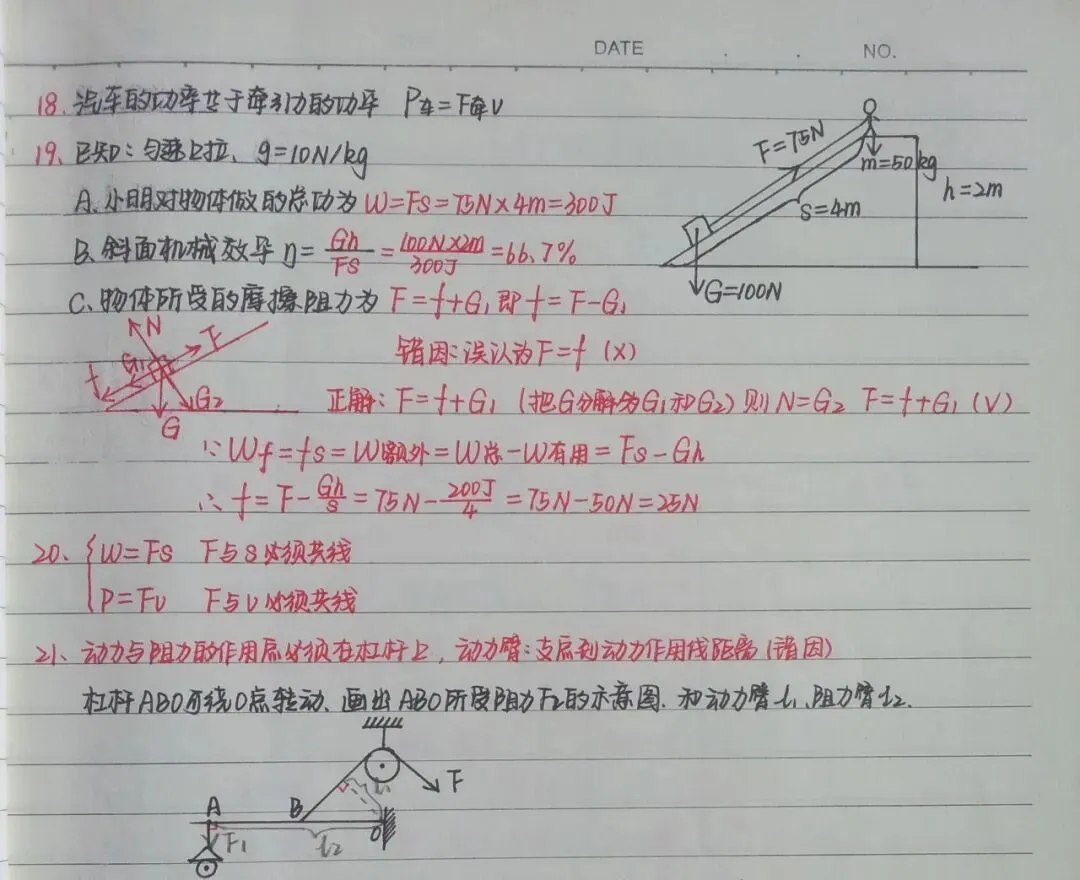 DATE . . NO.
18、汽车的功率等于牵引力的功率 P车=F牵v
19、已知:匀速上拉、g=10N/kg
F=75N
m=50kg
h=2m
s=4m
G=100N
A、小明对物体做的总功为 W=Fs=75N×4m=300J
B、斜面机械效率 η=Gh/Fs=100N×2m/300J=66.7%
C、物体所受的摩擦阻力为 F=f+G₁即f=F-G₁
N
F
G₁
f
G₂
G
错因:误认为F=f (×)
正解:F=f+G₁ (把G分解为G₁和G₂) 则N=G₂ F=f+G₁ (√)
∵Wf=fs=W额外=W总-W有用=Fs-Gh
∴f=F-Gh/s=75N-200J/4=75N-50N=25N
20、{W=Fs F与s必须共线
P=Fv F与v必须共线
21、动力与阻力的作用点必须在杠杆上,动力臂:支点到动力作用线距离(错因)
杠杆ABO可绕O点转动、画出ABO所受阻力F₂的示意图.和动力臂l₁、阻力臂l₂.
F
l₁
A
B
O
F₁
l₂